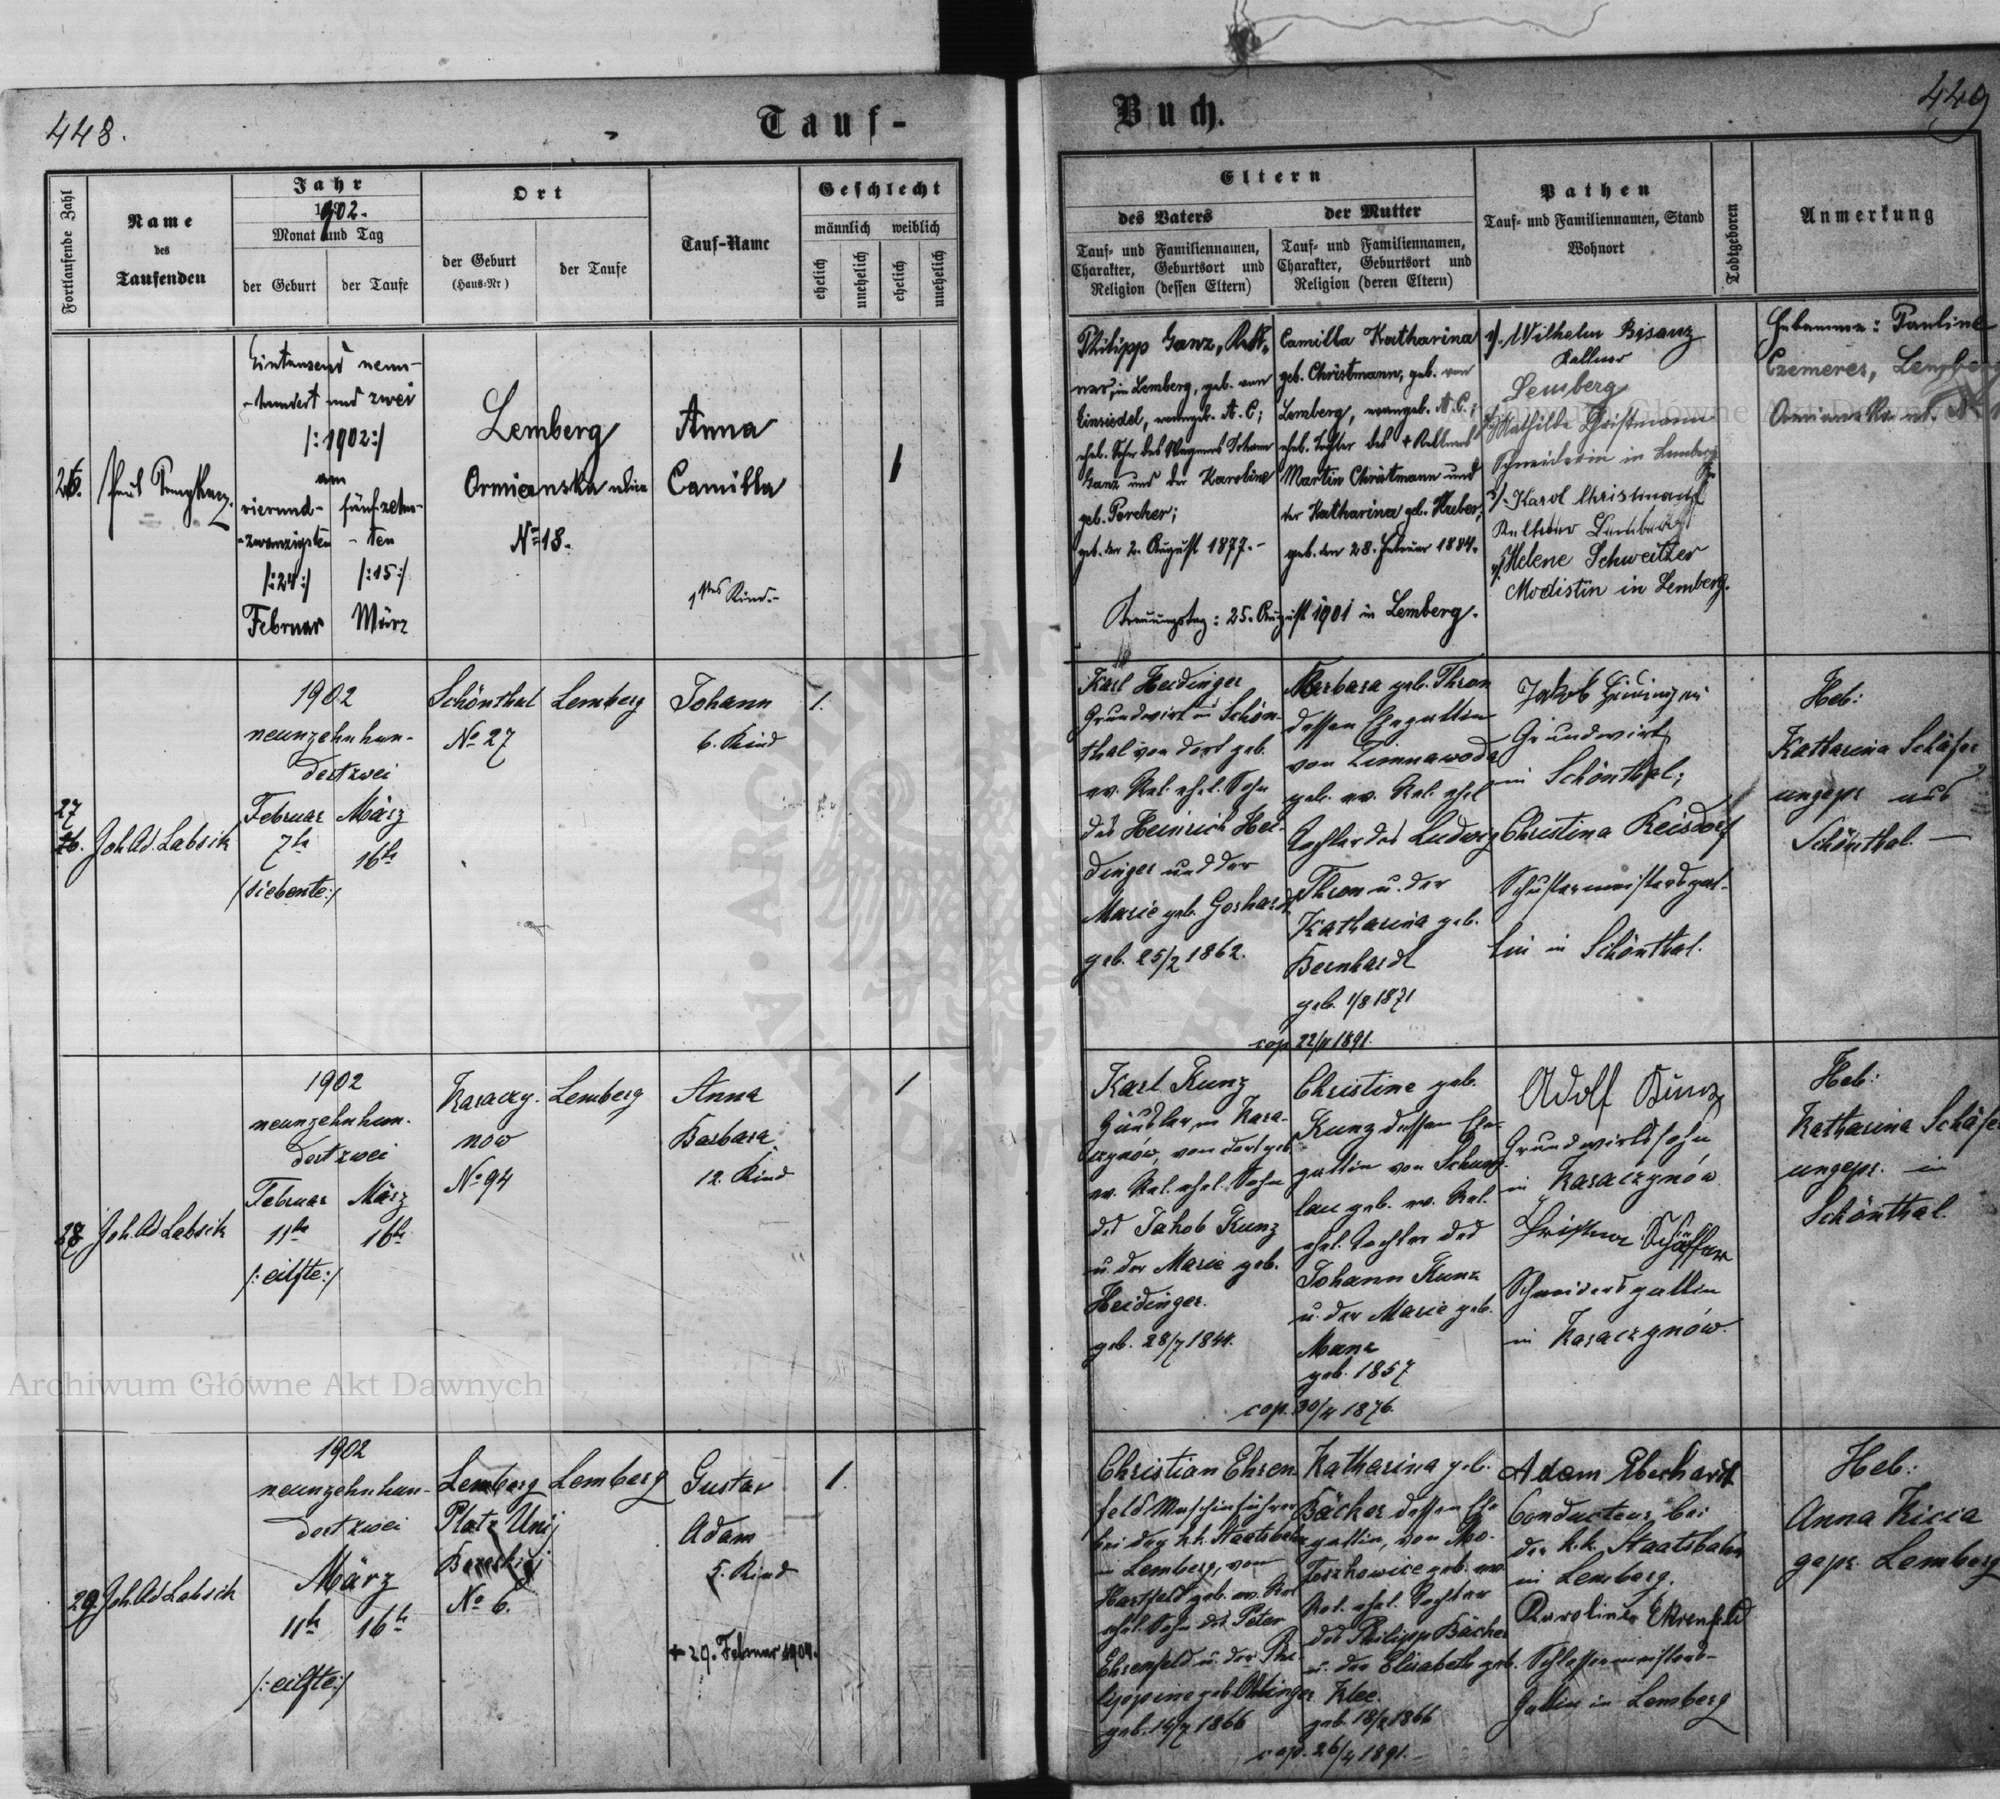 448.
Tauf-
Fortlaufende Zahl
Name
des
Taufenden
Jahr
1902.
Monat und Tag
der Geburt
der Taufe
Ort
der Geburt
(Haus-Nr)
der Taufe
Tauf-Name
Geschlecht
männlich weiblich
ehelich
unehelich
ehelich
unehelich
26.
Eintausend neun-
-hundert und zwei
/:1902:/
am
vierund-
-zwanzigsten
/:24:/
Februar
fünfzehn-
-ten
/:15:/
März
Lemberg
Ormianska ulica
No 18.
Anna
Camilla
1tes Kind.-
1
27
Joh. Ad. Labsik
1902
neunzehnhun-
dert zwei
Februar
7te
/siebente:/
März
16te
Schönthal
No 27
Lemberg
Johann
6. Kind
1.
28
Joh. Ad Labsik
1902
neunzehnhun-
dert zwei
Februar
11te
/:eilfte:/
März
16te
Karaczy-
now
No 94
Lemberg
Anna
Barbara
12. Kind
1
29.
Joh. Ad Labsik
1902
neunzehnhun-
dert zwei
März
11te
16te
/:eilfte:/
Lemberg
Platz Unij
No 6.
Lemberg
Gustav
Adam
5. Kind
+ 29. Februar 1904.
1.
Archiwum Główne Akt Dawnych
Buch.
449
Eltern
des Vaters
Tauf- und Familiennamen,
Charakter, Geburtsort und
Religion (dessen Eltern)
der Mutter
Tauf- und Familiennamen,
Charakter, Geburtsort und
Religion (deren Eltern)
Pathen
Tauf- und Familiennamen, Stand
Wohnort
Todtgeboren
Anmerkung
Philipp Ganz, Kell-
ner, in Lemberg, geb. von
Einsiedel, evangel. A. C.;
ehel. Sohn des Wagners Johann
Ganz und der Karoline
geb. Porcher;
geb. den 2. August 1877.-
Camilla Katharina
geb. Christmann, geb. von
Lemberg, evangel. A. C.;
ehel. Tochter des + Kellners
Martin Christmann und
der Katharina geb. Huber;
geb. den 28. Februar 1884.
Trauungstag: 25. August 1901 in Lemberg.
1/. Wilhelm Bisanz
Kellner
Lemberg
Mathilde Christmann
Schneiderin in Lemberg
3/. Karol Christmann
Helene Schweitzer
Modistin in Lemberg.
Hebamme: Pauline
Czemeres, Lemberg
Karl Heidinger
Grundwirt in Schön-
thal von dort geb.
ev. Rel. ehel. Sohn
des Heinrich Hei-
dinger und der
Marie geb. Gerhardt
geb. 25/2 1862.
Barbara geb. Thron
dessen Ehegattin
von Zimnawoda
geb. ev. Rel. ehel
Tochter des Ludwig
Thron u. der
Katharina geb.
Bernhardt
geb. 1/8 1871
cop. 22/11 1891.
Jakob Heidinger
Grundwirt
in Schönthal;
Christina Reisdorf
Schustermeistersgat-
tin in Schönthal.
Heb:
Katharina Schäfer
ungepr aus
Schönthal. —
Karl Kunz
Häusler, in Kara-
czynów, von dort geb.
ev. Rel. ehel. Sohn
des Jakob Kunz
u. der Marie geb.
Heidinger.
geb. 28/7 1844.
Christine geb.
Kunz dessen Ehe-
gattin von Schum-
lau geb. ev. Rel.
ehel. Tochter des
Johann Kunz
u. der Marie geb.
Manz
geb. 1857
cop. 30/4 1876.
Adolf Kunz
Grundwirtssohn
in Karaczynów
Schneidersgattin
in Karaczynów.
Heb:
Katharina Schäfer
ungepr. in
Schönthal.
Christian Ehren-
feld Maschinführer
bei der k.k. Staatsbahn
in Lemberg, von
Hartfeld geb. ev. Rel
ehel. Sohn des Peter
Ehrenfeld u. der Phi-
lippine geb. Ottinger
geb. 14/7 1866
Katharina geb.
Bäcker dessen Ehe
gattin, von Mo-
foszkowice geb. ev.
Rel. ehel. Tochter
des Philipp Bäcker
u. der Elisabeth geb.
Klee.
cop. 26/4 1891.-
Adam Eberhardt
Conducteur bei
der k.k. Staatsbahn
in Lemberg.
Karoline Ehrenfeld
Schlossermeisters-
Gattin in Lemberg
Heb:
Anna Kicia
gepr. Lemberg